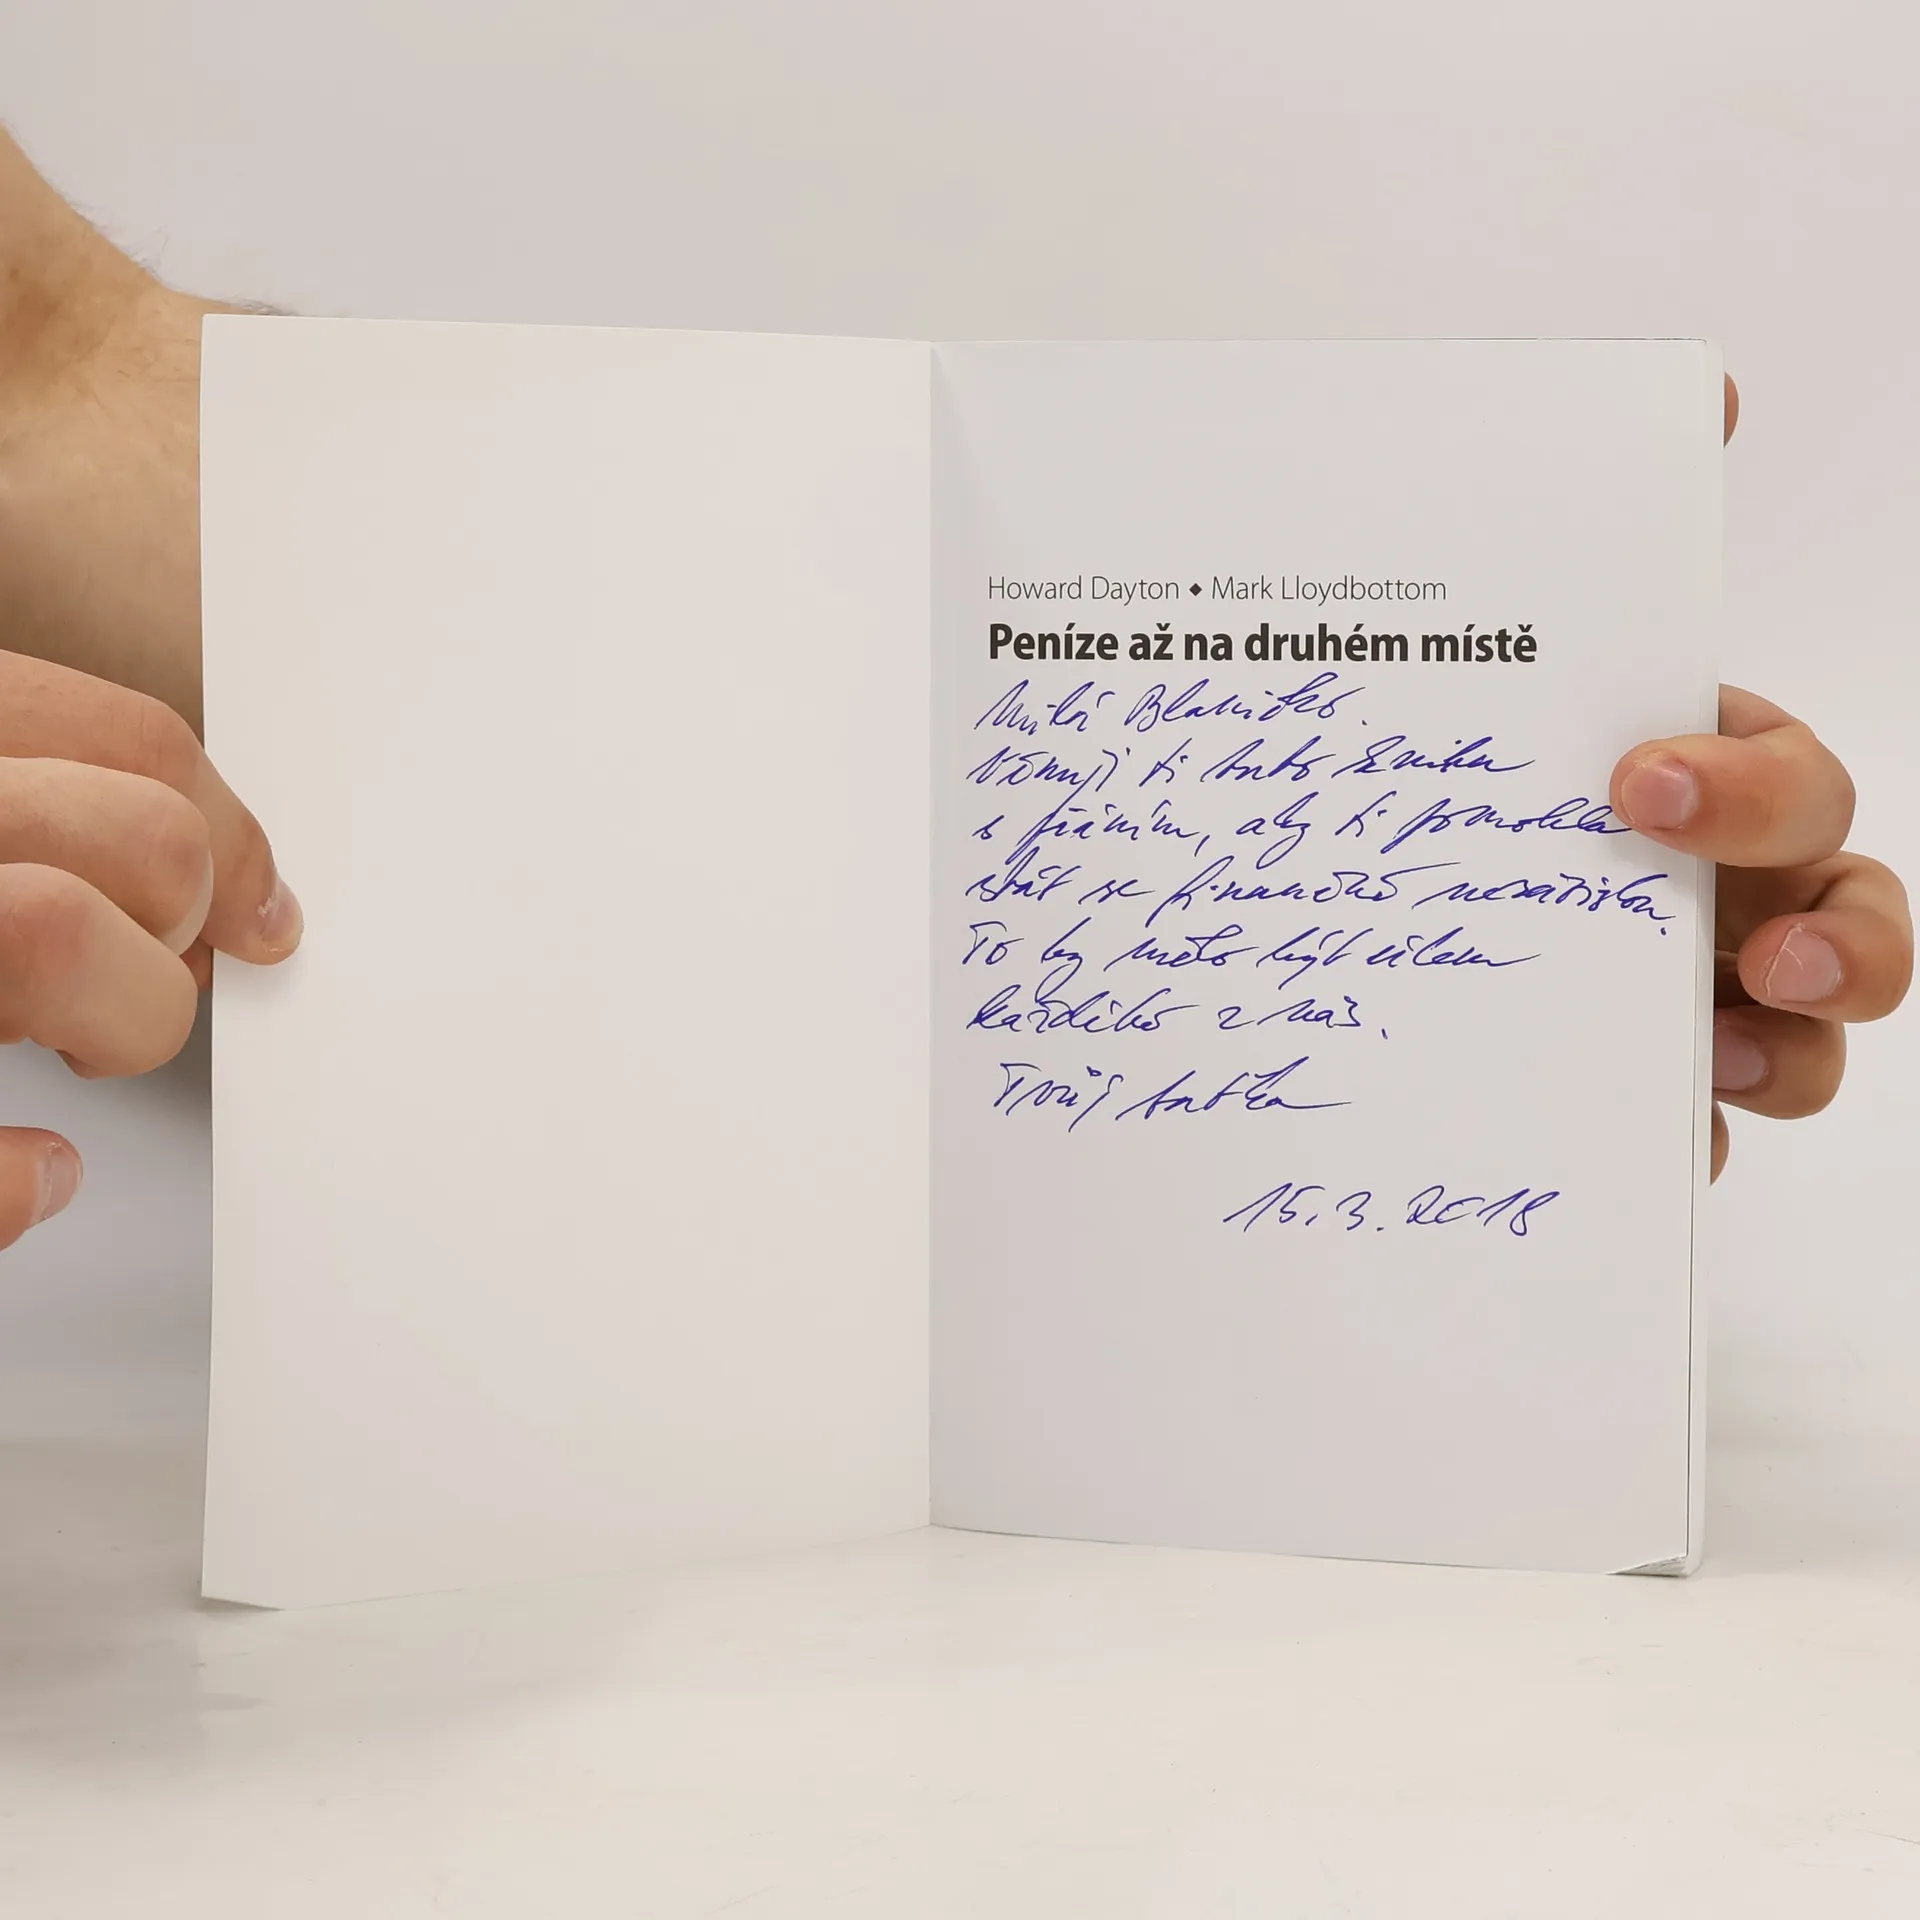 Howard Dayton ◆ Mark Lloydbottom
Peníze až na druhém místě
Milá Blaničko.
Věnuji ti tuto knihu
s přáním, aby ti pomohla
stát se finančně nezávislou.
To by mělo být cílem
každého z nás.
Tvůj taťka
15. 3. 2018